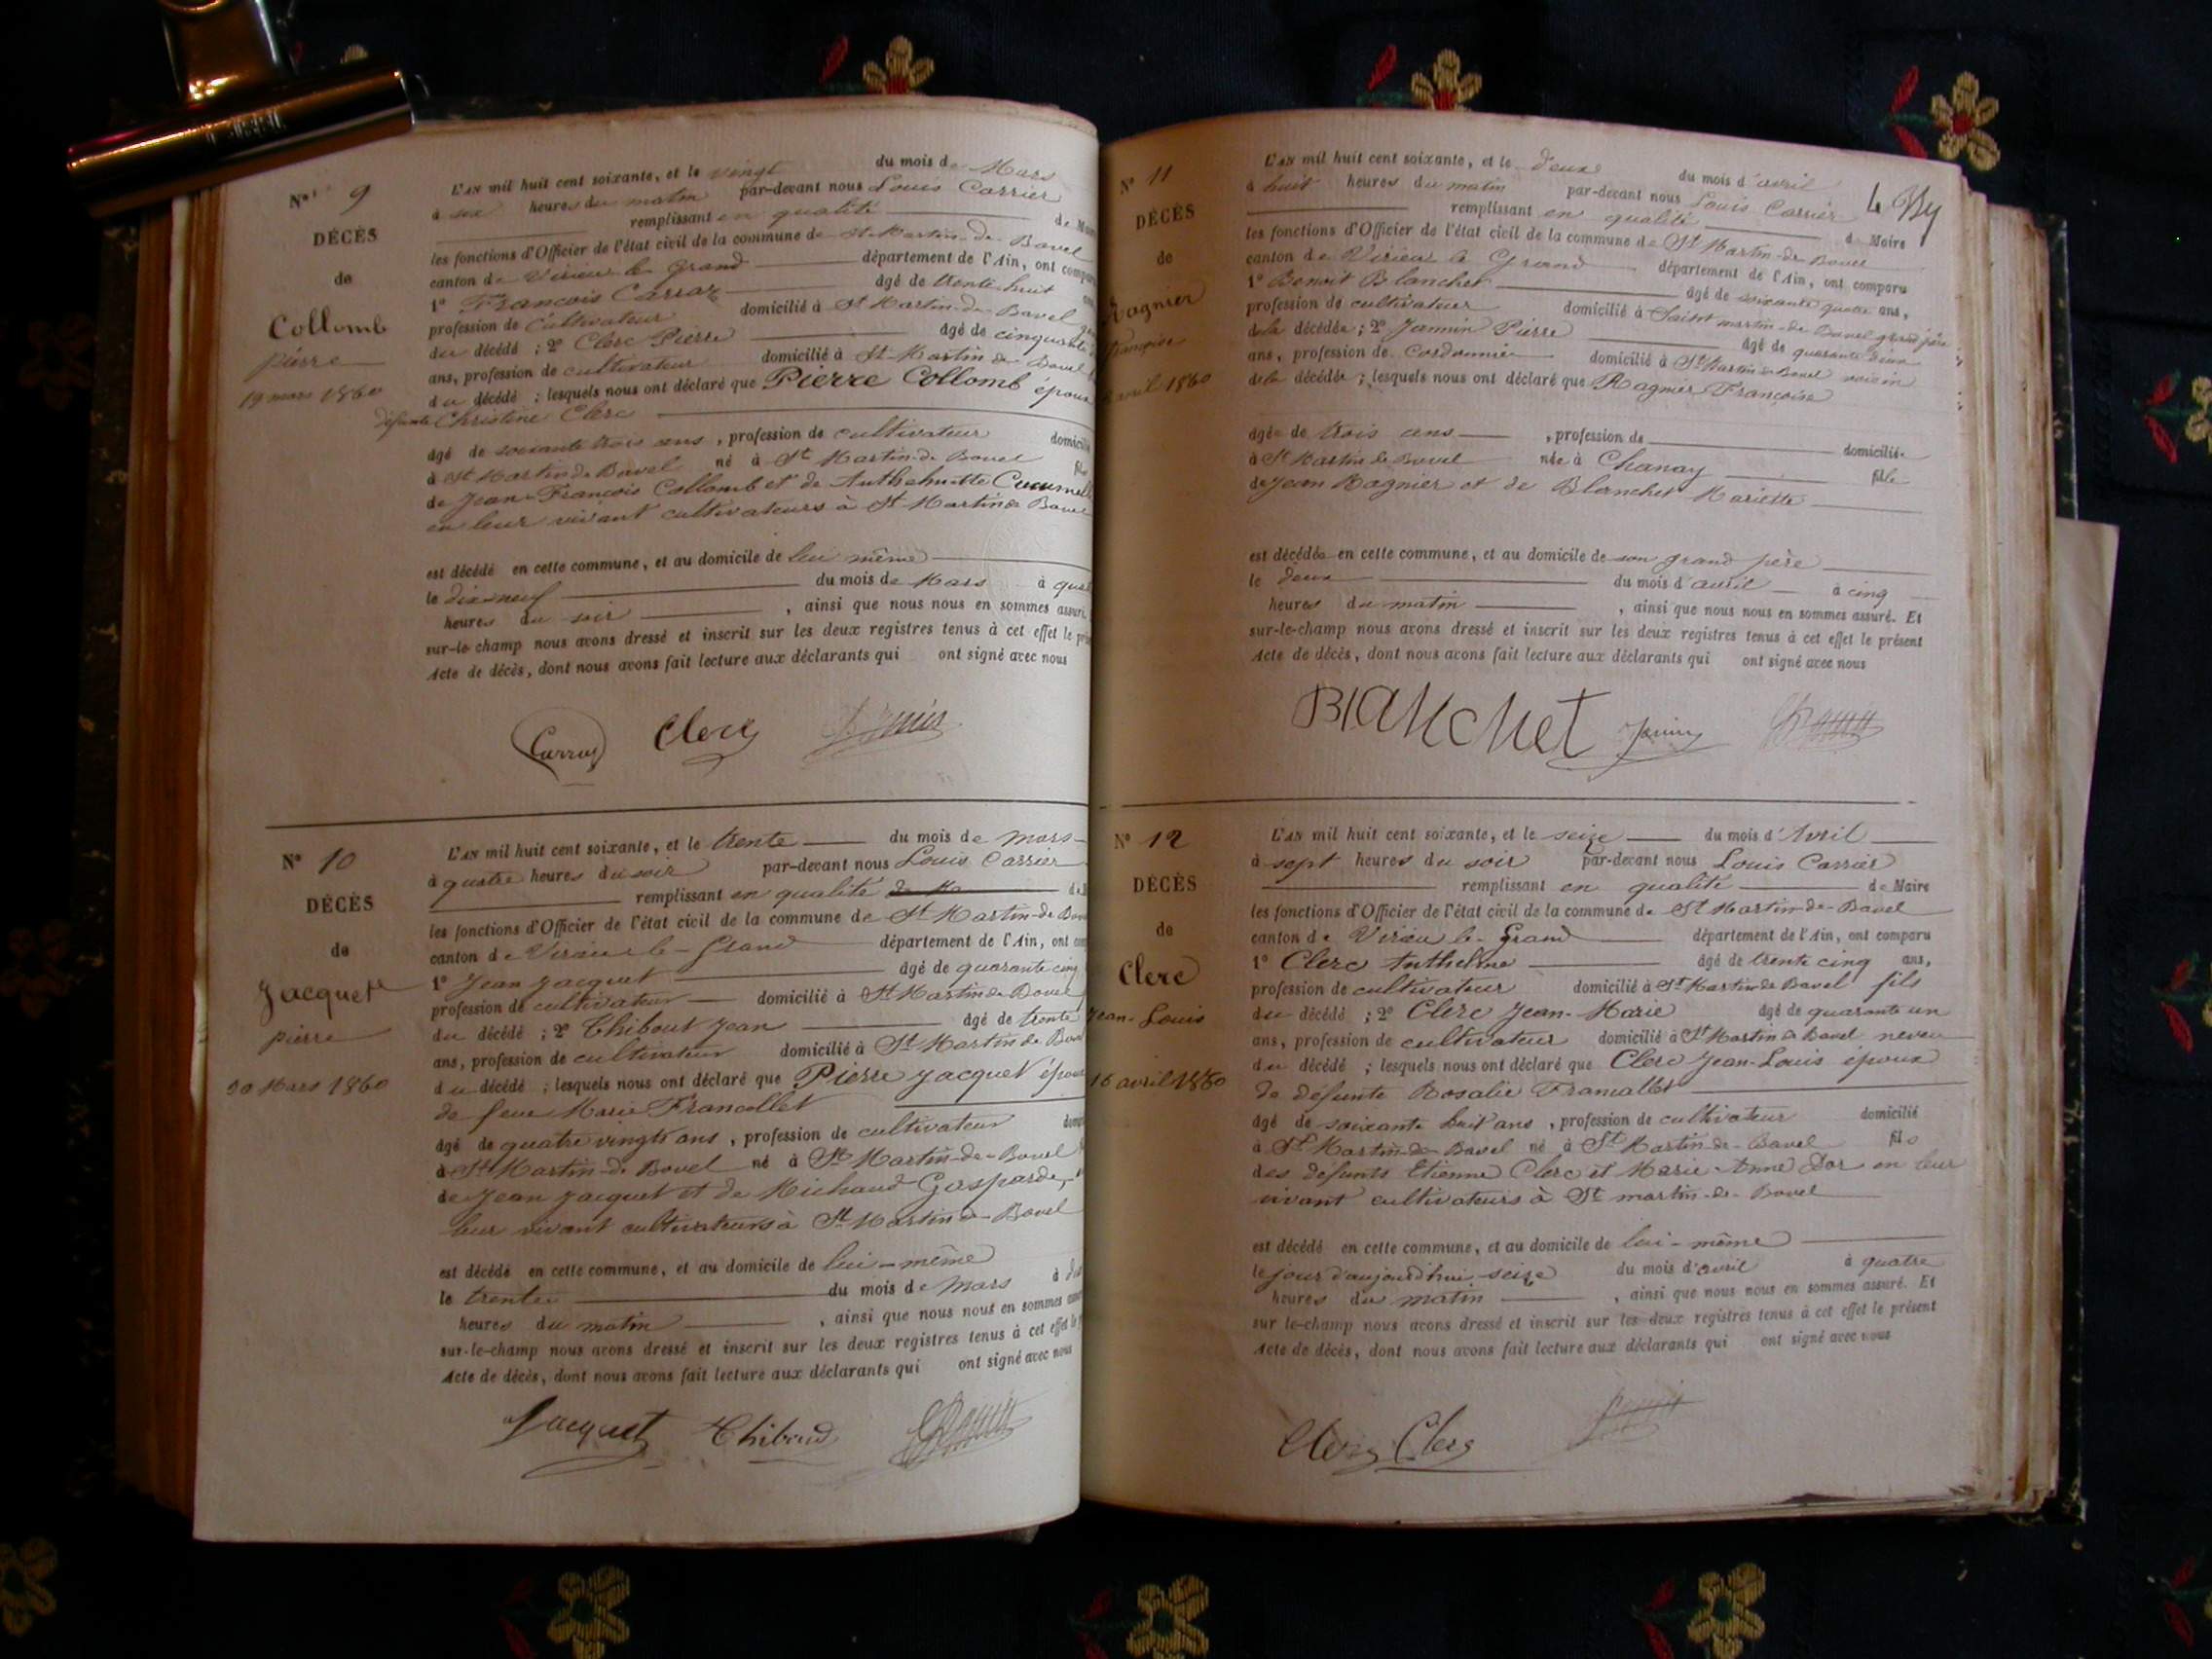 N° 9
DÉCÈS
de
Collomb
pierre
19 mars 1860
L'AN mil huit cent soixante, et le vingt du mois de Mars
à six heures du matin par-devant nous Louis Carrier
remplissant en qualité de
les fonctions d'Officier de l'état civil de la commune de St Martin-de Bavel
canton de Virieu le Grand département de l'Ain, ont
1° François Carraz âgé de trente huit
profession de cultivateur domicilié à St Martin-de-Bavel
du décédé ; 2° Clerc Pierre âgé de cinquante
ans, profession de cultivateur domicilié à St Martin de Bavel
du décédé ; lesquels nous ont déclaré que Pierre Collomb époux
défunte Christine Clerc
âgé de soixante trois ans, profession de cultivateur
à St Martin de Bavel né à St Martin-de Bavel
de Jean-François Collomb et de
en leur vivant cultivateurs à St Martin de Bavel
est décédé en cette commune, et au domicile de lui même
le dix-neuf du mois de Mars à
heures du soir, ainsi que nous nous en sommes assuré.
sur-le-champ nous avons dressé et inscrit sur les deux registres tenus à cet effet le
Acte de décès, dont nous avons fait lecture aux déclarants qui ont signé avec nous
Carraz Clerc
N° 10
DÉCÈS
de
Jacquet
pierre
30 Mars 1860
L'AN mil huit cent soixante, et le trente du mois de mars
à quatre heures du soir par-devant nous Louis Carrier
remplissant en qualité
les fonctions d'Officier de l'état civil de la commune de St Martin-de
canton de Virieu-le-Grand département de l'Ain, ont
1° Jean Jacquet âgé de quarante cinq
profession de cultivateur domicilié à St Martin de Bavel
du décédé ; 2° Thibout Jean âgé de trente
ans, profession de cultivateur domicilié à St Martin de
du décédé ; lesquels nous ont déclaré que Pierre Jacquet époux
de feue Marie Francollet
âgé de quatre vingts ans, profession de cultivateur
à St Martin-de Bavel né à St Martin-de-Bavel
de Jean Jacquet et de Michaud Gasparde,
leur vivant cultivateurs à St Martin de Bavel
est décédé en cette commune, et au domicile de lui-même
le trente du mois de Mars à
heures du matin, ainsi que nous nous en sommes
sur-le-champ nous avons dressé et inscrit sur les deux registres tenus à cet effet
Acte de décès, dont nous avons fait lecture aux déclarants qui ont signé avec nous
Jacquet Thiboud
N° 11
DÉCÈS
de
Ragnier
Françoise
avril 1860
L'AN mil huit cent soixante, et le deux du mois d'avril
à huit heures du matin par-devant nous Louis Carrier
remplissant en qualité de Maire
les fonctions d'Officier de l'état civil de la commune de St Martin-de-Bavel
canton de Virieu le Grand département de l'Ain, ont comparu
1° Benoit Blanchet âgé de soixante quatre ans,
profession de cultivateur domicilié à Saint martin-de Bavel grand père
de la décédée ; 2° Jannin Pierre âgé de quarante deux
ans, profession de cordonnier domicilié à St Martin de Bavel voisin
de la décédée ; lesquels nous ont déclaré que Ragnier Françoise
âgée de trois ans, profession de domiciliée
à St Martin de Bavel née à Chanay fille
de Jean Ragnier et de Blanchet Mariette
est décédée en cette commune, et au domicile de son grand père
le deux du mois d'avril à cinq
heures du matin, ainsi que nous nous en sommes assuré. Et
sur-le-champ nous avons dressé et inscrit sur les deux registres tenus à cet effet le présent
Acte de décès, dont nous avons fait lecture aux déclarants qui ont signé avec nous
BLANCHET Janin
N° 12
DÉCÈS
de
Clerc
Jean-Louis
16 avril 1860
L'AN mil huit cent soixante, et le seize du mois d'Avril
à sept heures du soir par-devant nous Louis Carrier
remplissant en qualité de Maire
les fonctions d'Officier de l'état civil de la commune de St Martin-de-Bavel
canton de Virieu le-Grand département de l'Ain, ont comparu
1° Clerc Anthelme âgé de trente cinq ans,
profession de cultivateur domicilié à St Martin de Bavel fils
du décédé ; 2° Clerc Jean-Marie âgé de quarante un
ans, profession de cultivateur domicilié à St Martin de Bavel neveu
du décédé ; lesquels nous ont déclaré que Clerc Jean-Louis époux
de défunte Rosalie Francallet
âgé de soixante huit ans, profession de cultivateur domicilié
à St Martin-de-Bavel né à St Martin-de-Bavel fils
des défunts Etienne Clerc et Marie-Anne Dor en leur
vivant cultivateurs à St martin-de-Bavel
est décédé en cette commune, et au domicile de lui-même
le jour d'aujourd'hui seize du mois d'avril à quatre
heures du matin, ainsi que nous nous en sommes assuré. Et
sur le-champ nous avons dressé et inscrit sur les deux registres tenus à cet effet le présent
Acte de décès, dont nous avons fait lecture aux déclarants qui ont signé avec nous
Clerc Clerc